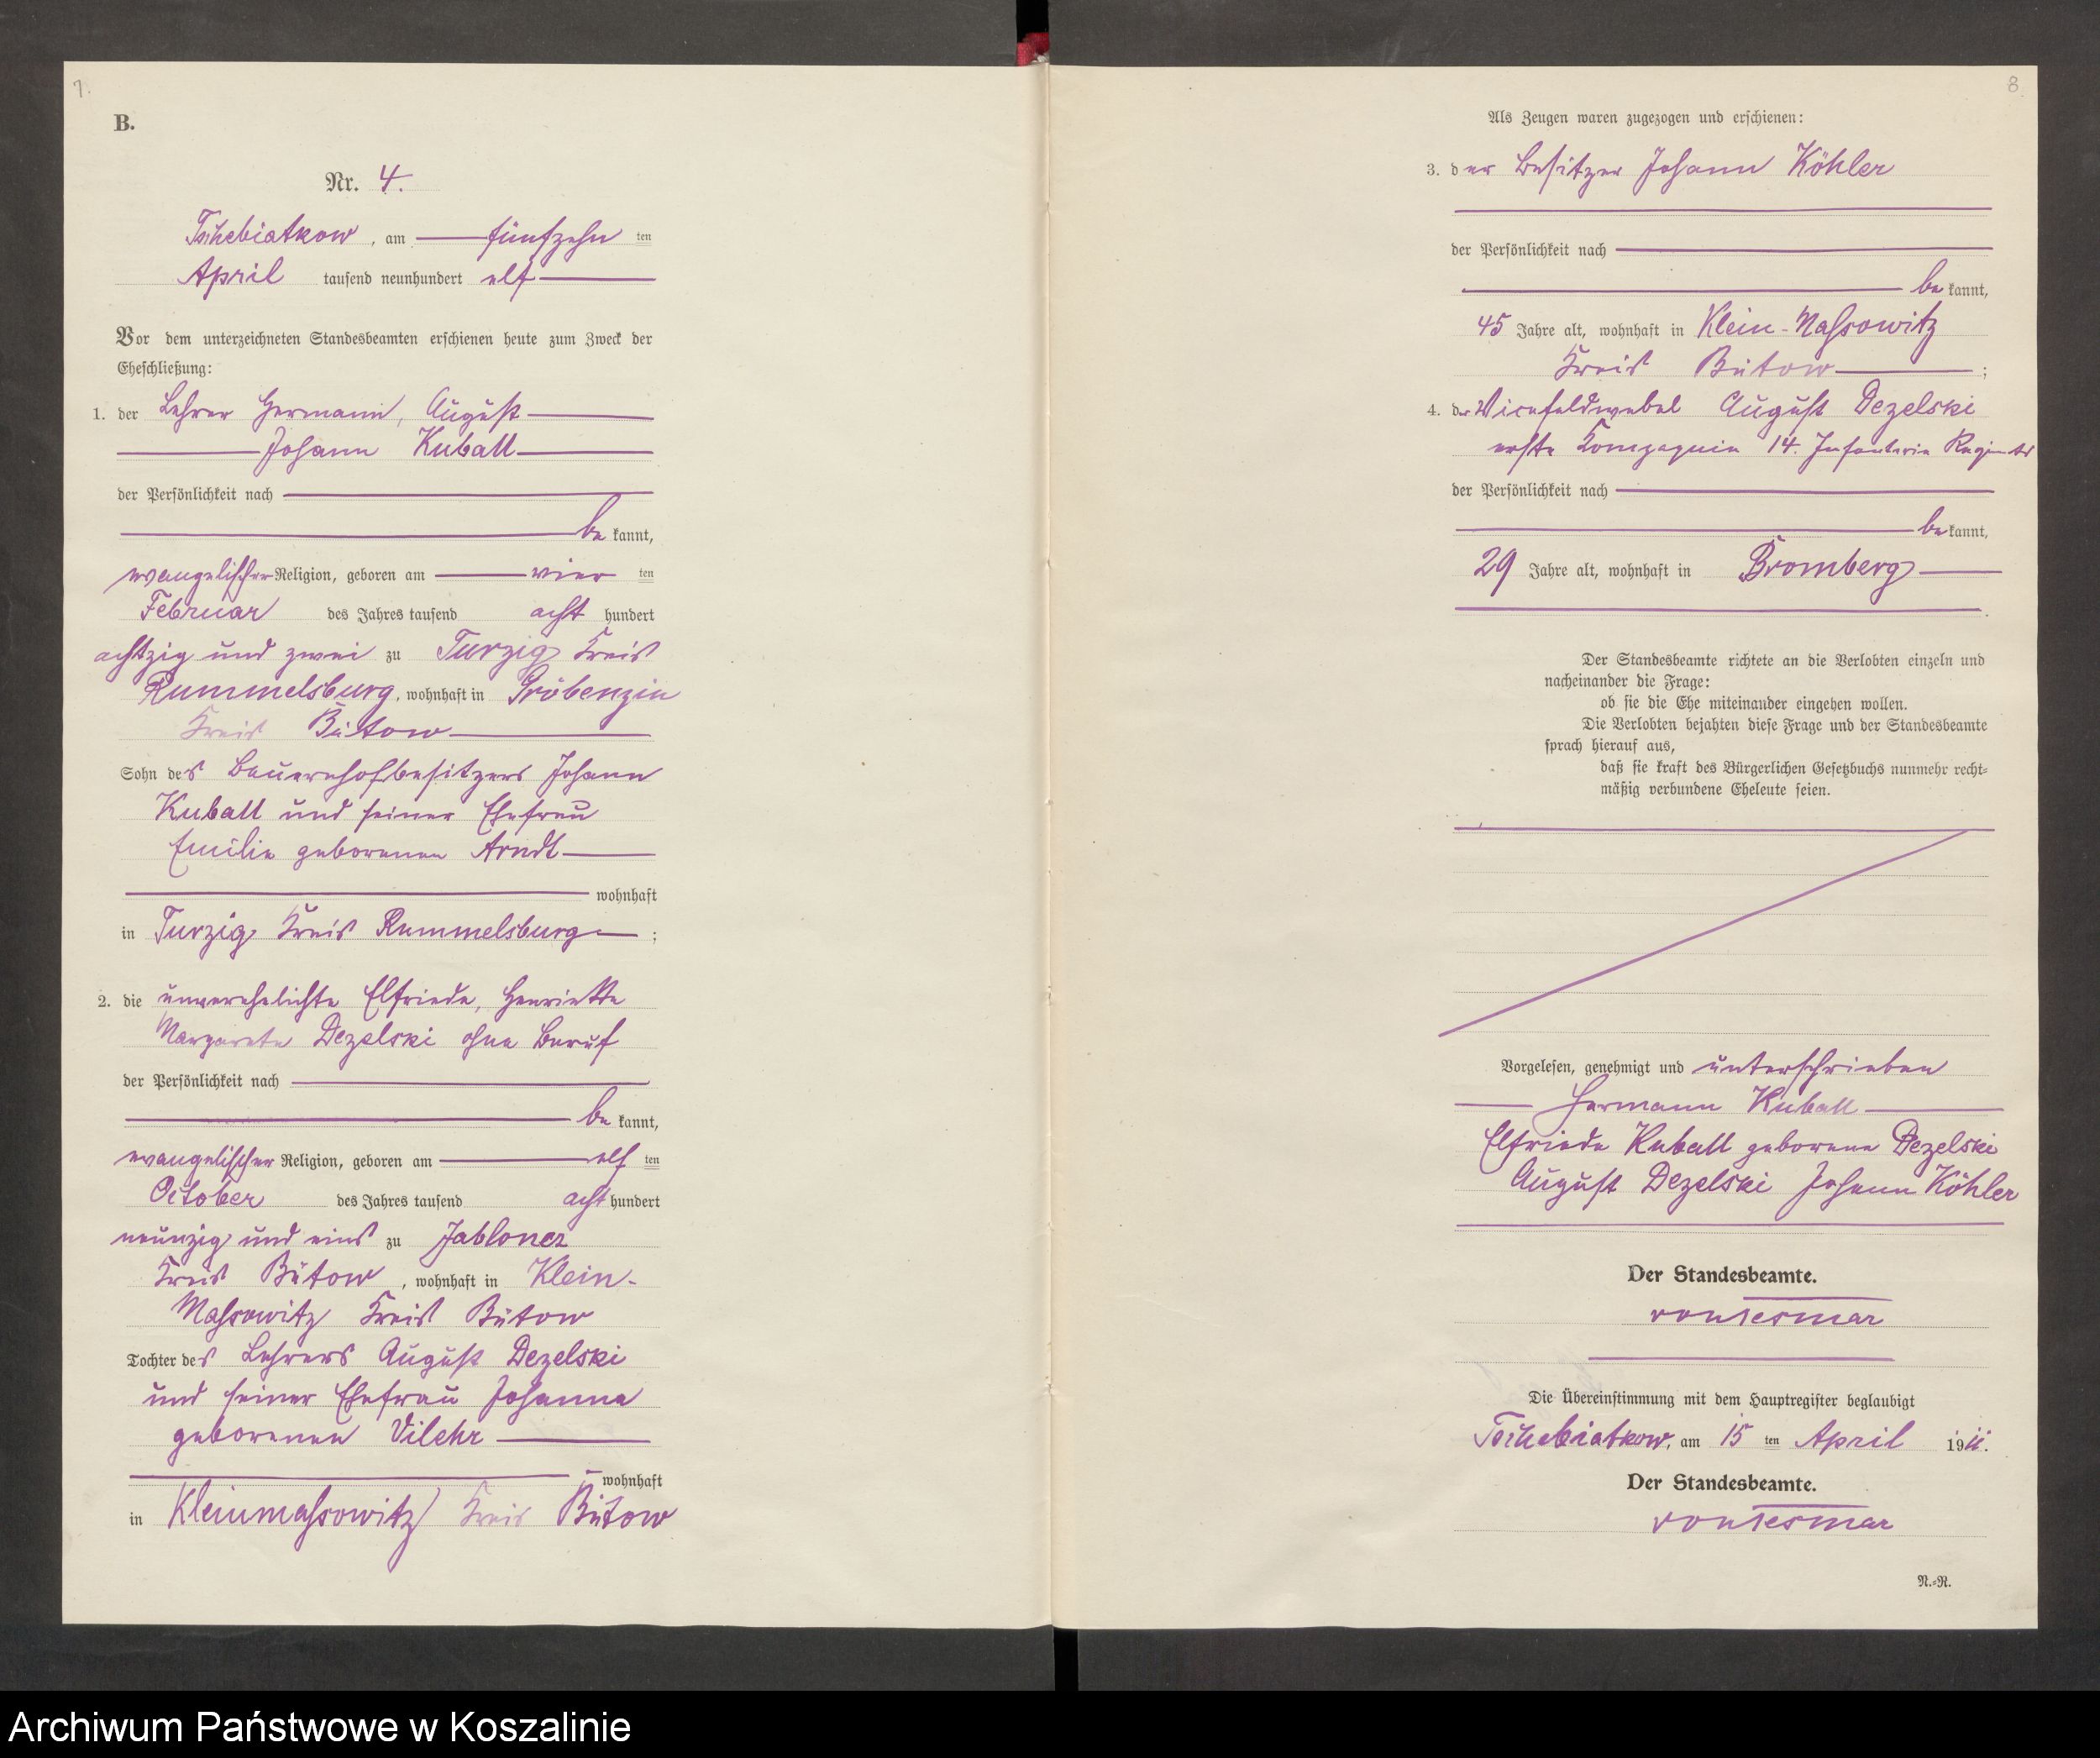 7.
B.
Nr. 4.
Tschebiatkow, am fünfzehn ten
April tausend neunhundert elf
Vor dem unterzeichneten Standesbeamten erschienen heute zum Zweck der
Eheschließung:
1. der Lehrer Hermann, August
Johann Kuball
der Persönlichkeit nach
be kannt,
evangelischer Religion, geboren am vier ten
Februar des Jahres tausend acht hundert
achtzig und zwei zu Turzig Kreis
Rummelsburg, wohnhaft in Gröbenzin
Kreis Bütow
Sohn des Bauernhofbesitzers Johann
Kuball und seiner Ehefrau
Emilie geborenen Arndt
wohnhaft
in Turzig Kreis Rummelsburg ;
2. die unverehelichte Elfriede, Henriette
Margarete Dezelski ohne Beruf
der Persönlichkeit nach
be kannt,
evangelischer Religion, geboren am elf ten
October des Jahres tausend acht hundert
neunzig und eins zu Jabloncz
Kreis Bütow, wohnhaft in Klein-
Massowitz Kreis Bütow
Tochter des Lehrers August Dezelski
und seiner Ehefrau Johanna
geborenen Vilehr
wohnhaft
in Kleinmassowitz Kreis Bütow
8
Als Zeugen waren zugezogen und erschienen:
3. der Besitzer Johann Köhler
der Persönlichkeit nach
be kannt,
45 Jahre alt, wohnhaft in Klein-Massowitz
Kreis Bütow ;
4. der Vicefeldwebel August Dezelski
erste Kompagnie 14. Infanterie Regiments
der Persönlichkeit nach
be kannt,
29 Jahre alt, wohnhaft in Bromberg
.
Der Standesbeamte richtete an die Verlobten einzeln und
nacheinander die Frage:
ob sie die Ehe miteinander eingehen wollen.
Die Verlobten bejahten diese Frage und der Standesbeamte
sprach hierauf aus,
daß sie kraft des Bürgerlichen Gesetzbuchs nunmehr recht-
mäßig verbundene Eheleute seien.
Vorgelesen, genehmigt und unterschrieben
Hermann Kuball
Elfriede Kuball geborene Dezelski
August Dezelski Johann Köhler
Der Standesbeamte.
von Tesmar
Die Übereinstimmung mit dem Hauptregister beglaubigt
Tschebiatkow, am 15 ten April 1911.
Der Standesbeamte.
von Tesmar
N.-R.
Archiwum Państwowe w Koszalinie